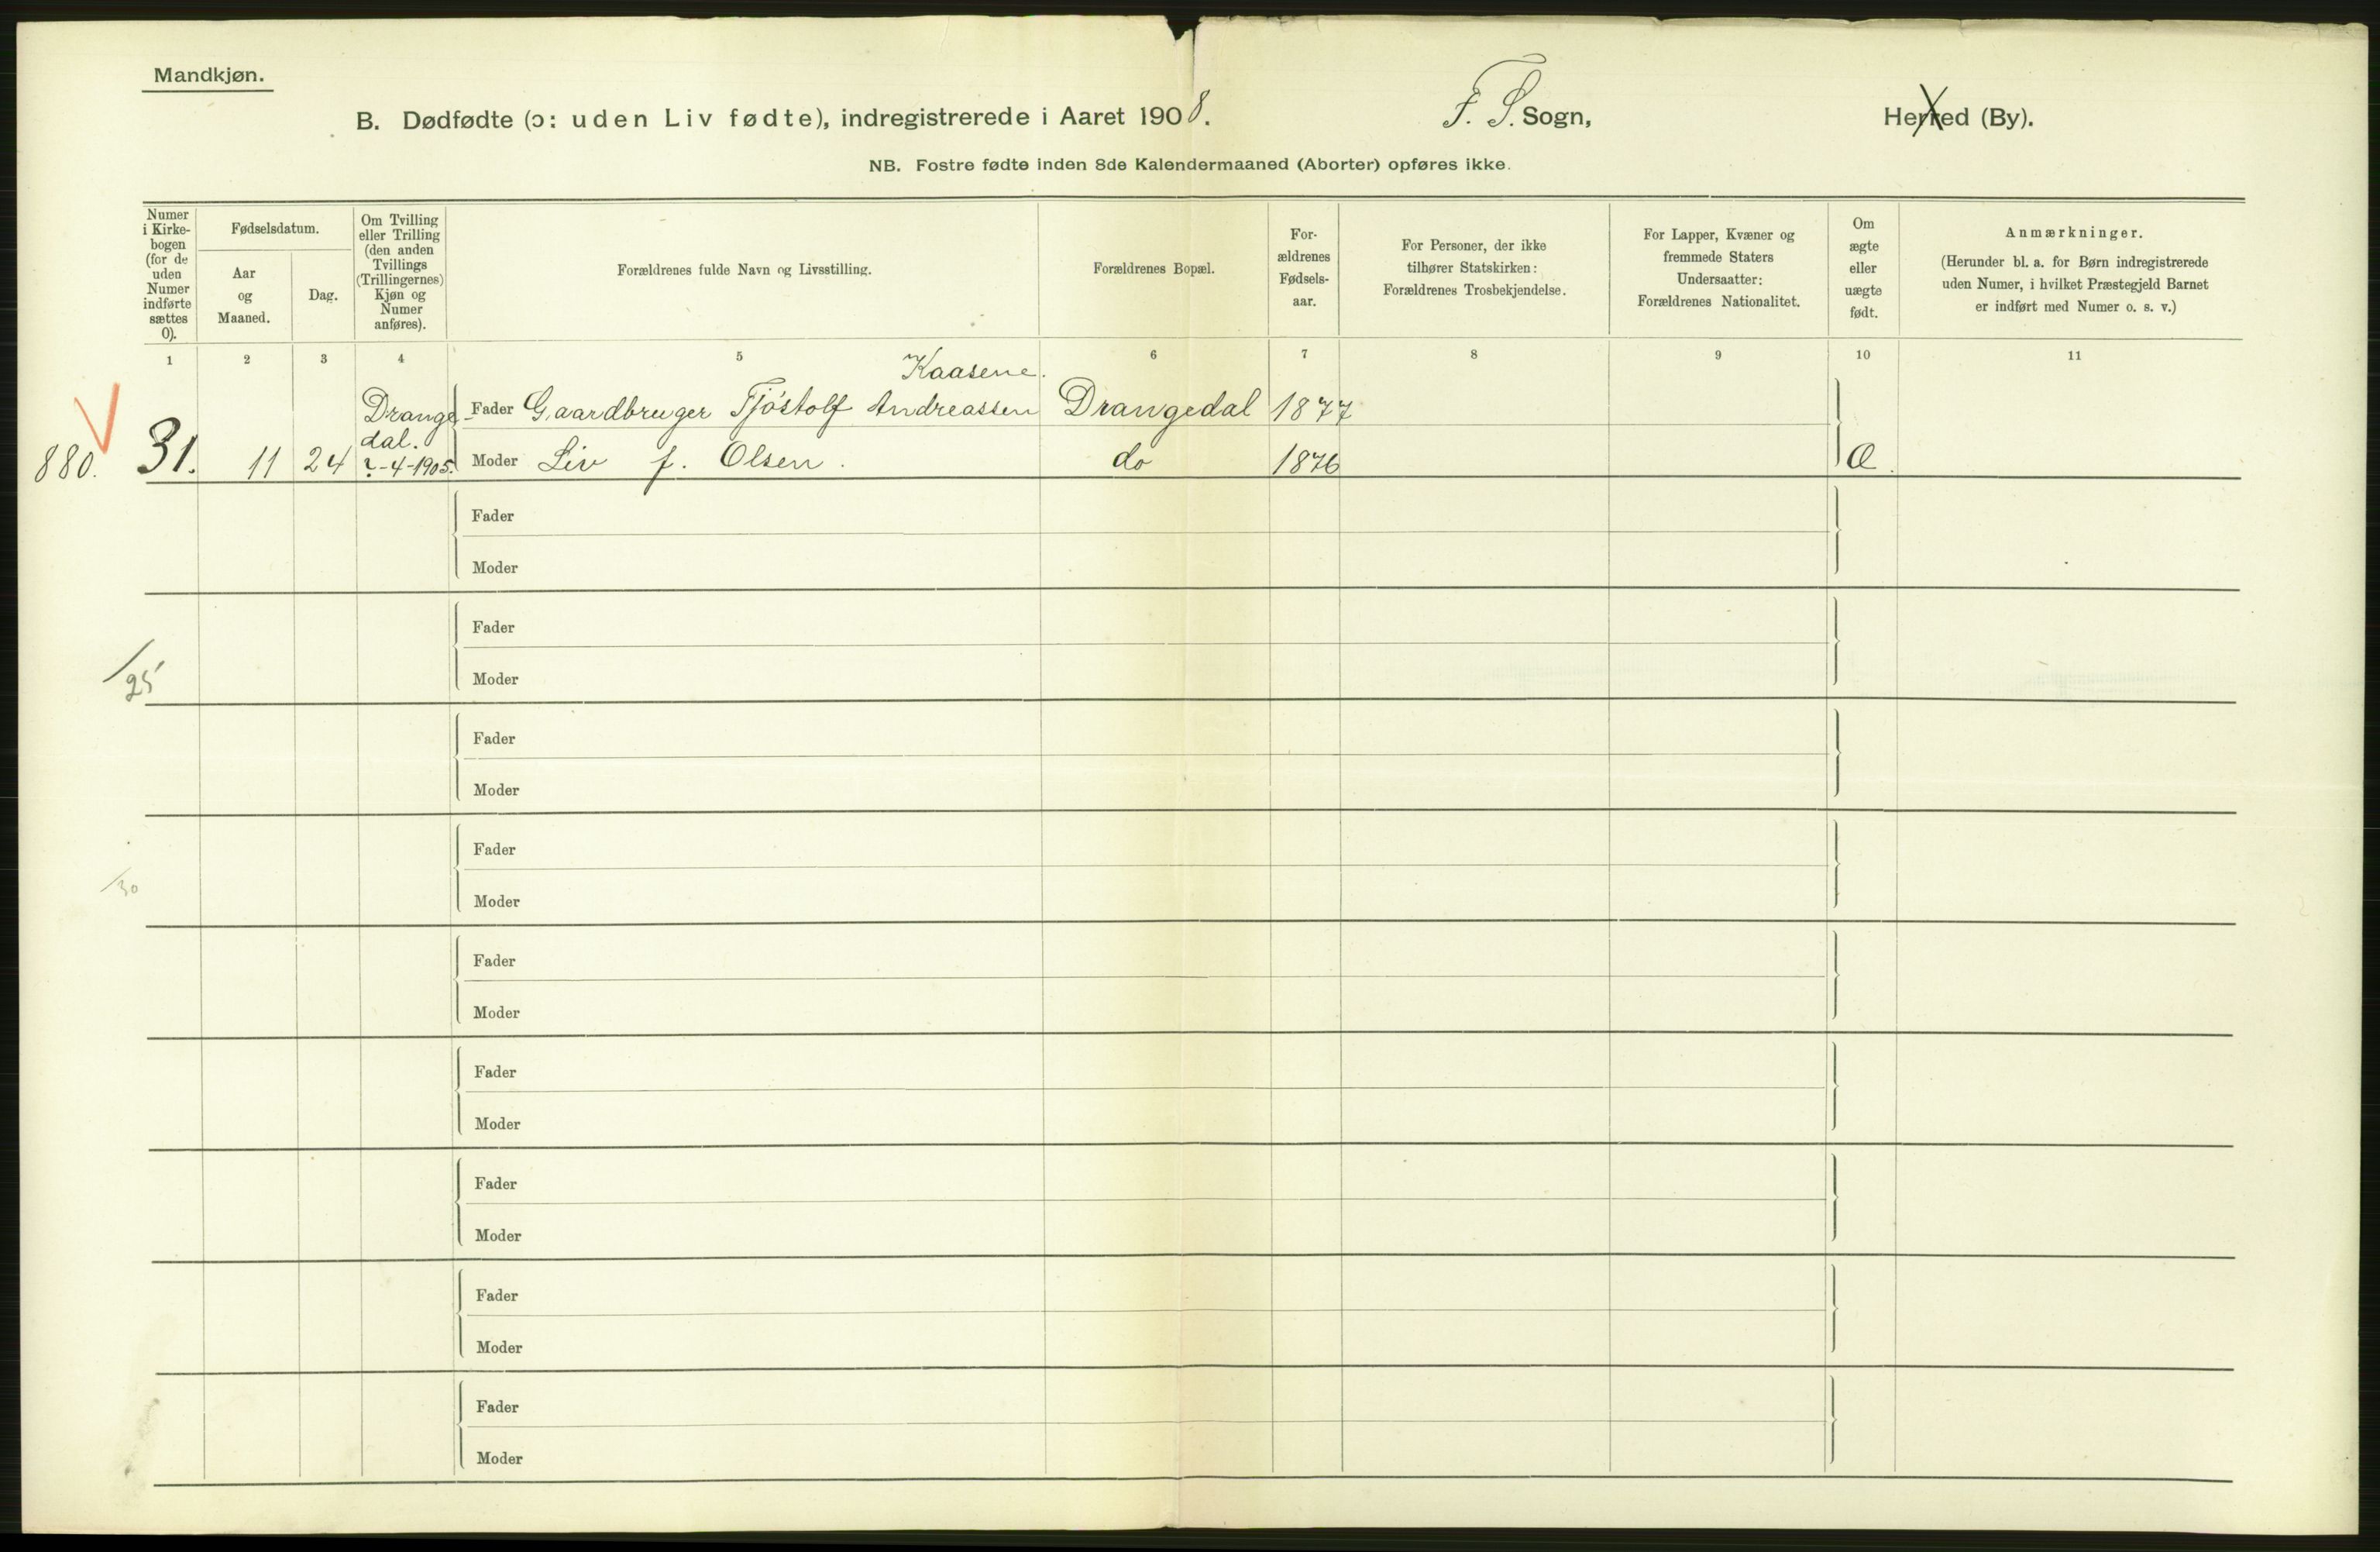 Mandkjøn.
B. Dødfødte (ɔ: uden Liv fødte), indregistrerede i Aaret 1908. F. S. Sogn, Herred (By).
NB. Fostre fødte inden 8de Kalendermaaned (Aborter) opføres ikke.
Numer
i Kirke-
bogen
(for de
uden
Numer
indførte
sættes
0).
Fødselsdatum.
Aar
og
Maaned.
Dag.
Om Tvilling
eller Trilling
(den anden
Tvillings
(Trillingernes)
Kjøn og
Numer
anføres).
Forældrenes fulde Navn og Livsstilling.
Forældrenes Bopæl.
For-
ældrenes
Fødsels-
aar.
For Personer, der ikke
tilhører Statskirken:
Forældrenes Trosbekjendelse.
For Lapper, Kvæner og
fremmede Staters
Undersaatter:
Forældrenes Nationalitet.
Om
ægte
eller
uægte
født.
Anmærkninger.
(Herunder bl. a. for Børn indregistrerede
uden Numer, i hvilket Præstegjeld Barnet
er indført med Numer o. s. v.)
1 2 3 4 5 6 7 8 9 10 11
Kaasene.
Drange-
dal.
?-4-1905.
Fader Gaardbruger Tjøstolf Andreassen Drangedal 1877
880. 31. 11 24 Moder Liv f. Olsen. do 1876 Æ.
Fader
Moder
Fader
/25 Moder
Fader
Moder
Fader
/30 Moder
Fader
Moder
Fader
Moder
Fader
Moder
Fader
Moder
Fader
Moder